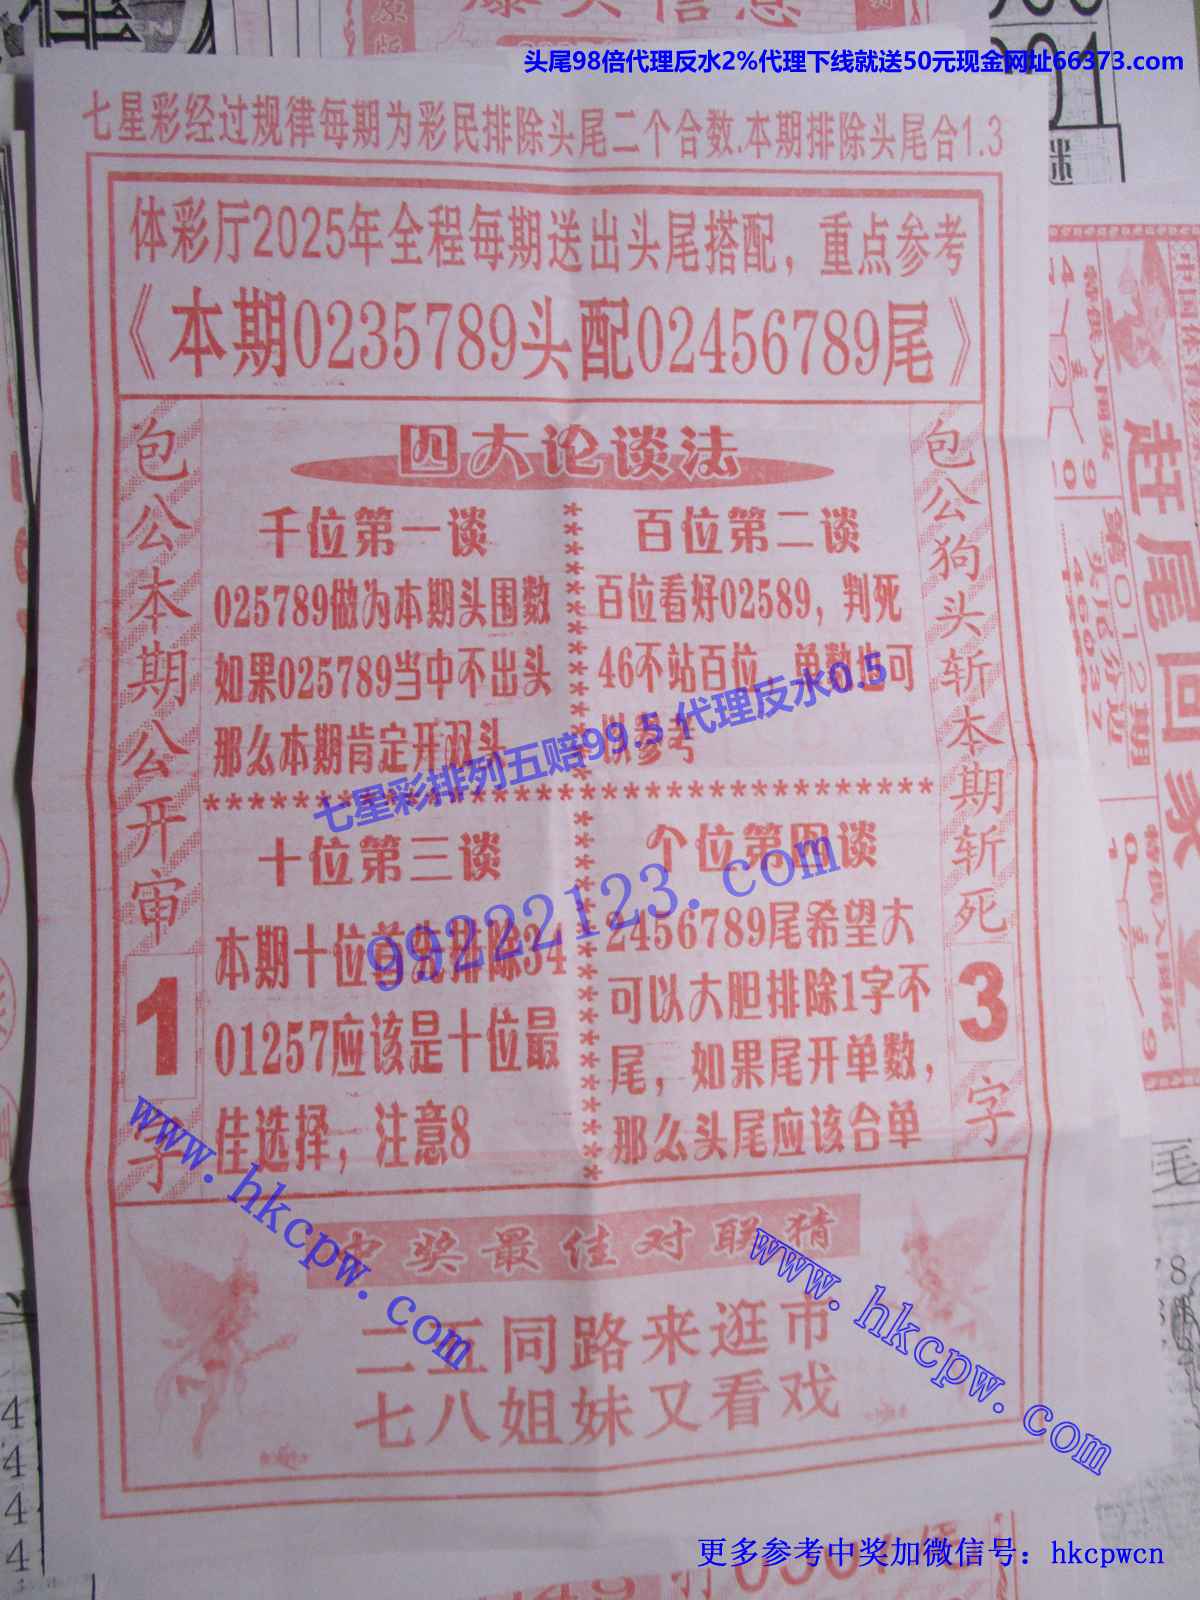 头尾98倍代理反水2%代理下线就送50元现金网址66373.com
七星彩经过规律每期为彩民排除头尾二个合数.本期排除头尾合1.3
体彩厅2025年全程每期送出头尾搭配，重点参考
《本期0235789头配02456789尾》
包公本期公开审
1
字
四大论谈法
千位第一谈
025789做为本期头围数
如果025789当中不出头
那么本期肯定开双头
百位第二谈
百位看好02589，判死
46不站百位，单数也可
以参考
********************************
十位第三谈
本期十位首先排除34
01257应该是十位最
佳选择，注意8
个位第四谈
2456789尾希望大
可以大胆排除1字不
尾，如果尾开单数，
那么头尾应该合单
包公狗头斩本期斩死
3
字
七星彩排列五赔99.5 代理反水0.5
99222123.com
中奖最佳对联猜
二五同路来逛市
七八姐妹又看戏
www.hkcpw.com
www.hkcpw.com
赶尾回家
第012期
更多参考中奖加微信号：hkcpwcn